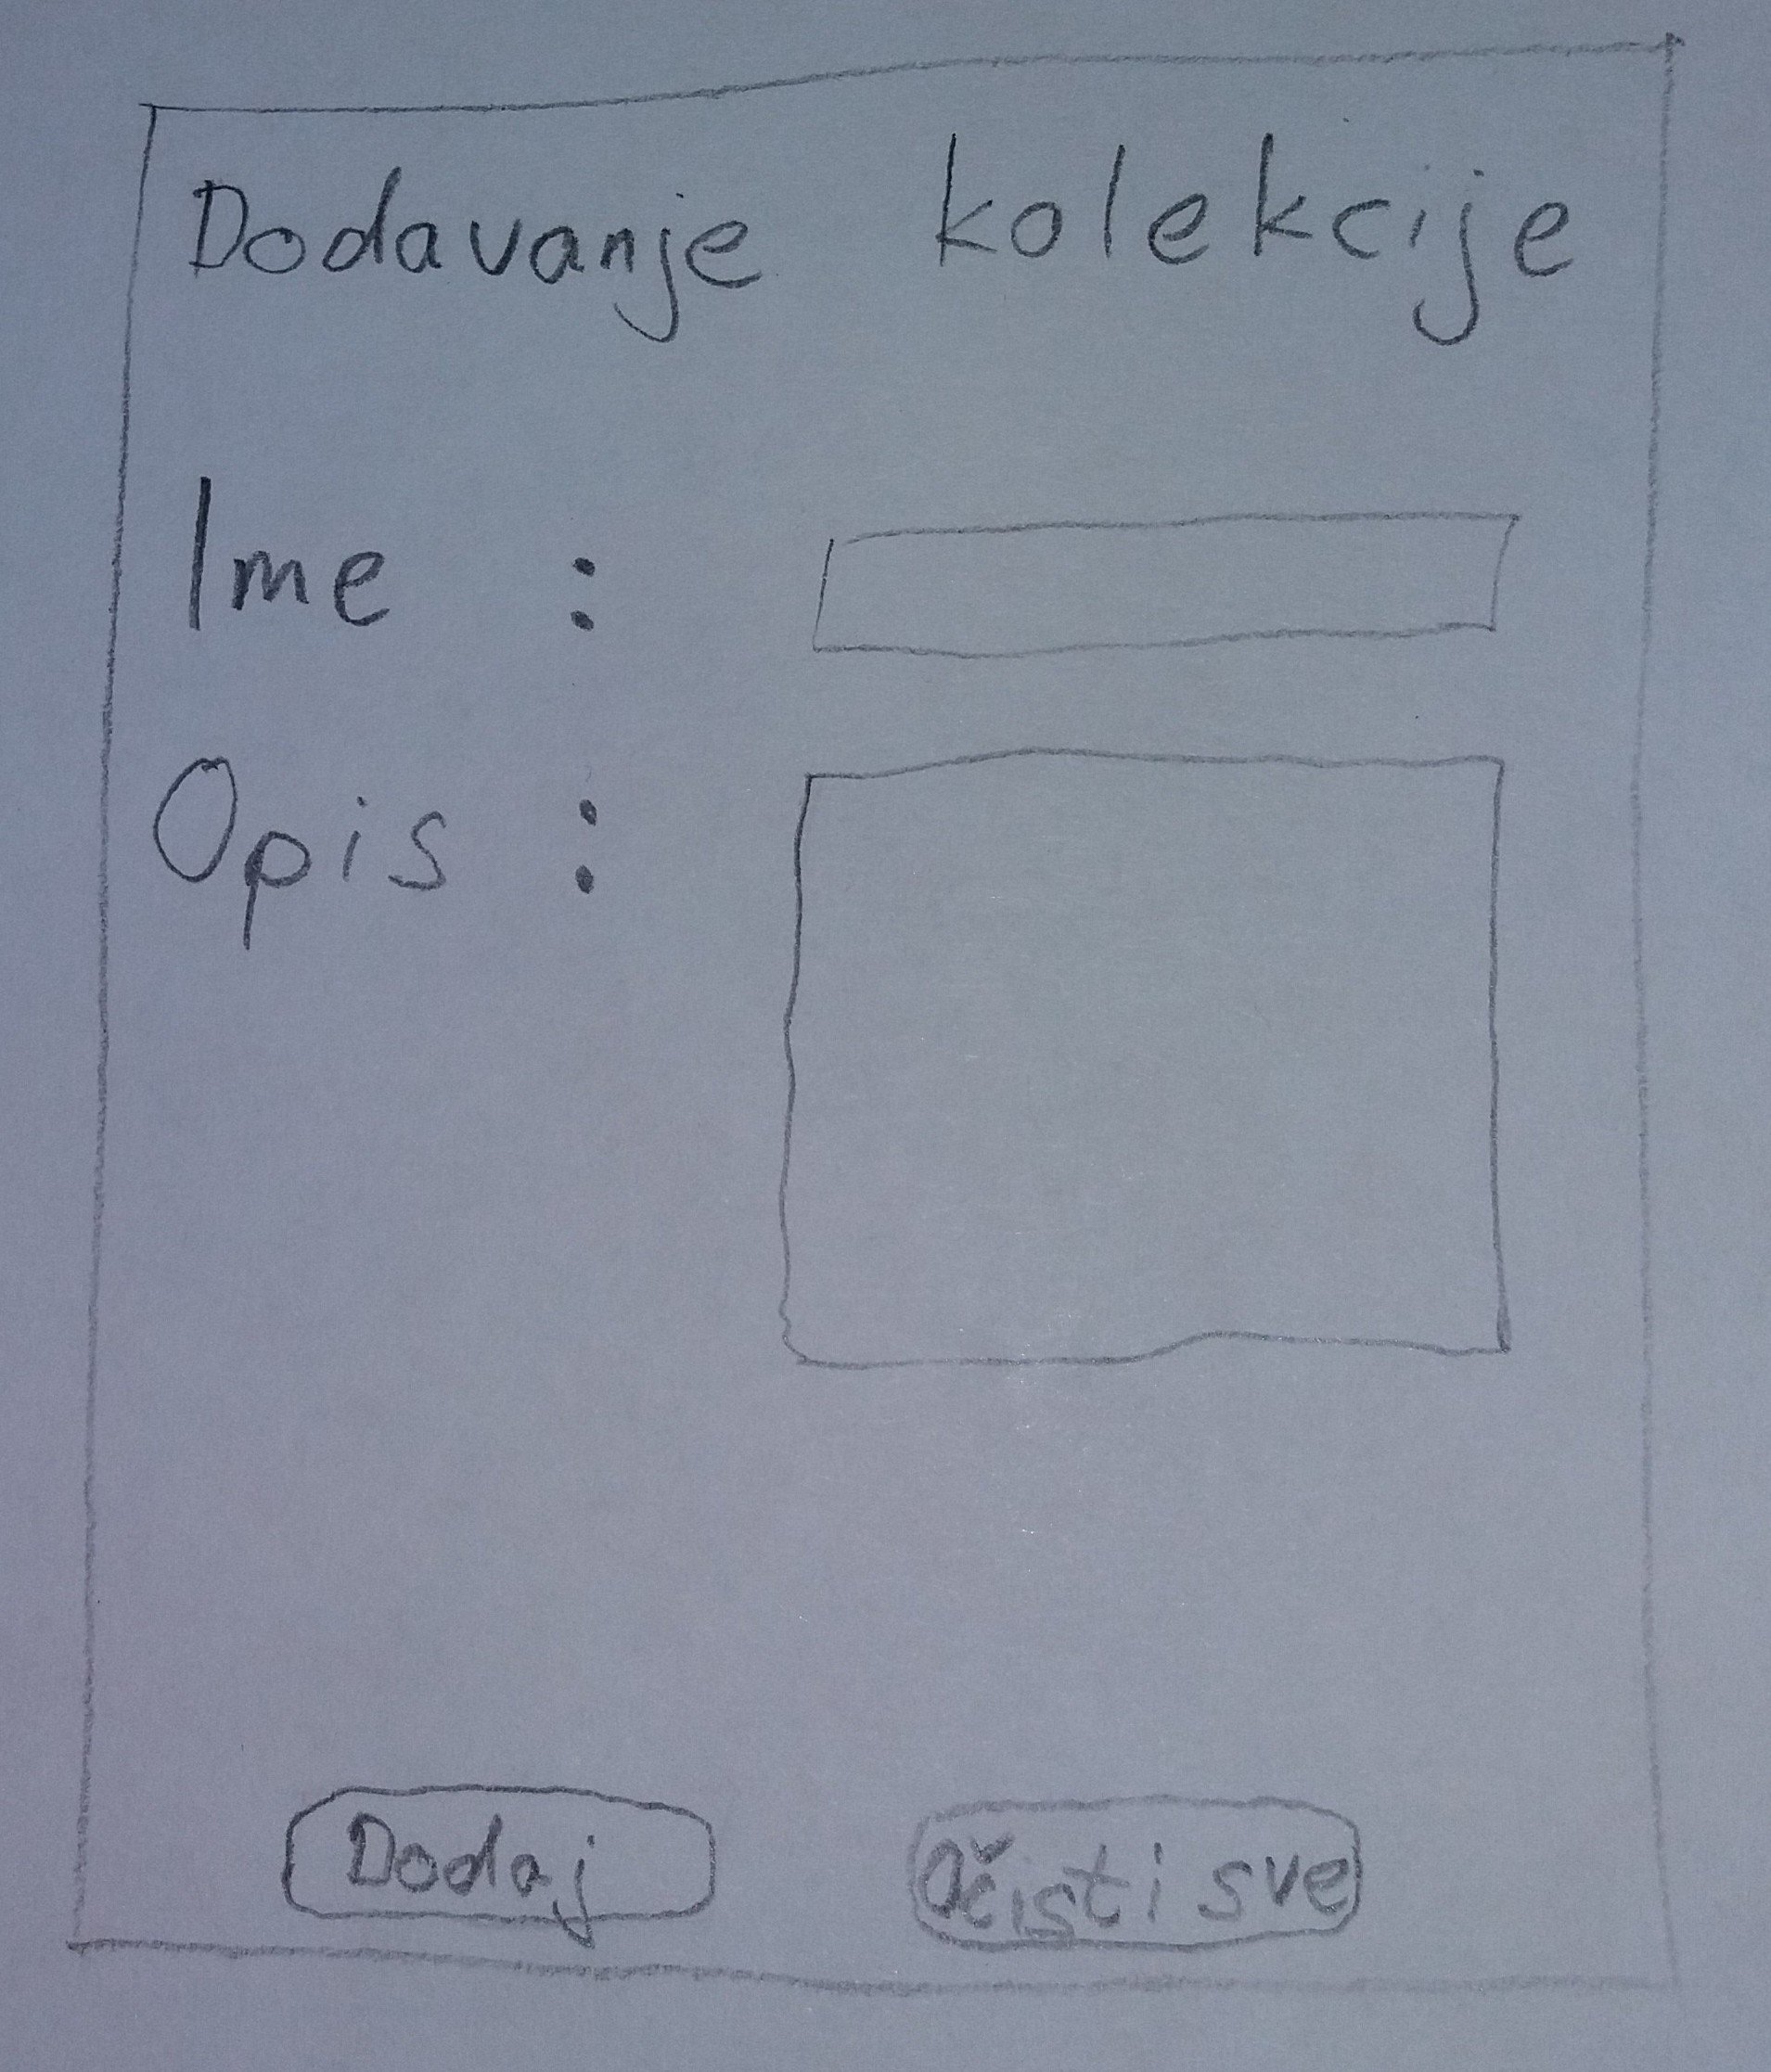 Dodavanje kolekcije
Ime :
Opis :
Dodaj
Očisti sve